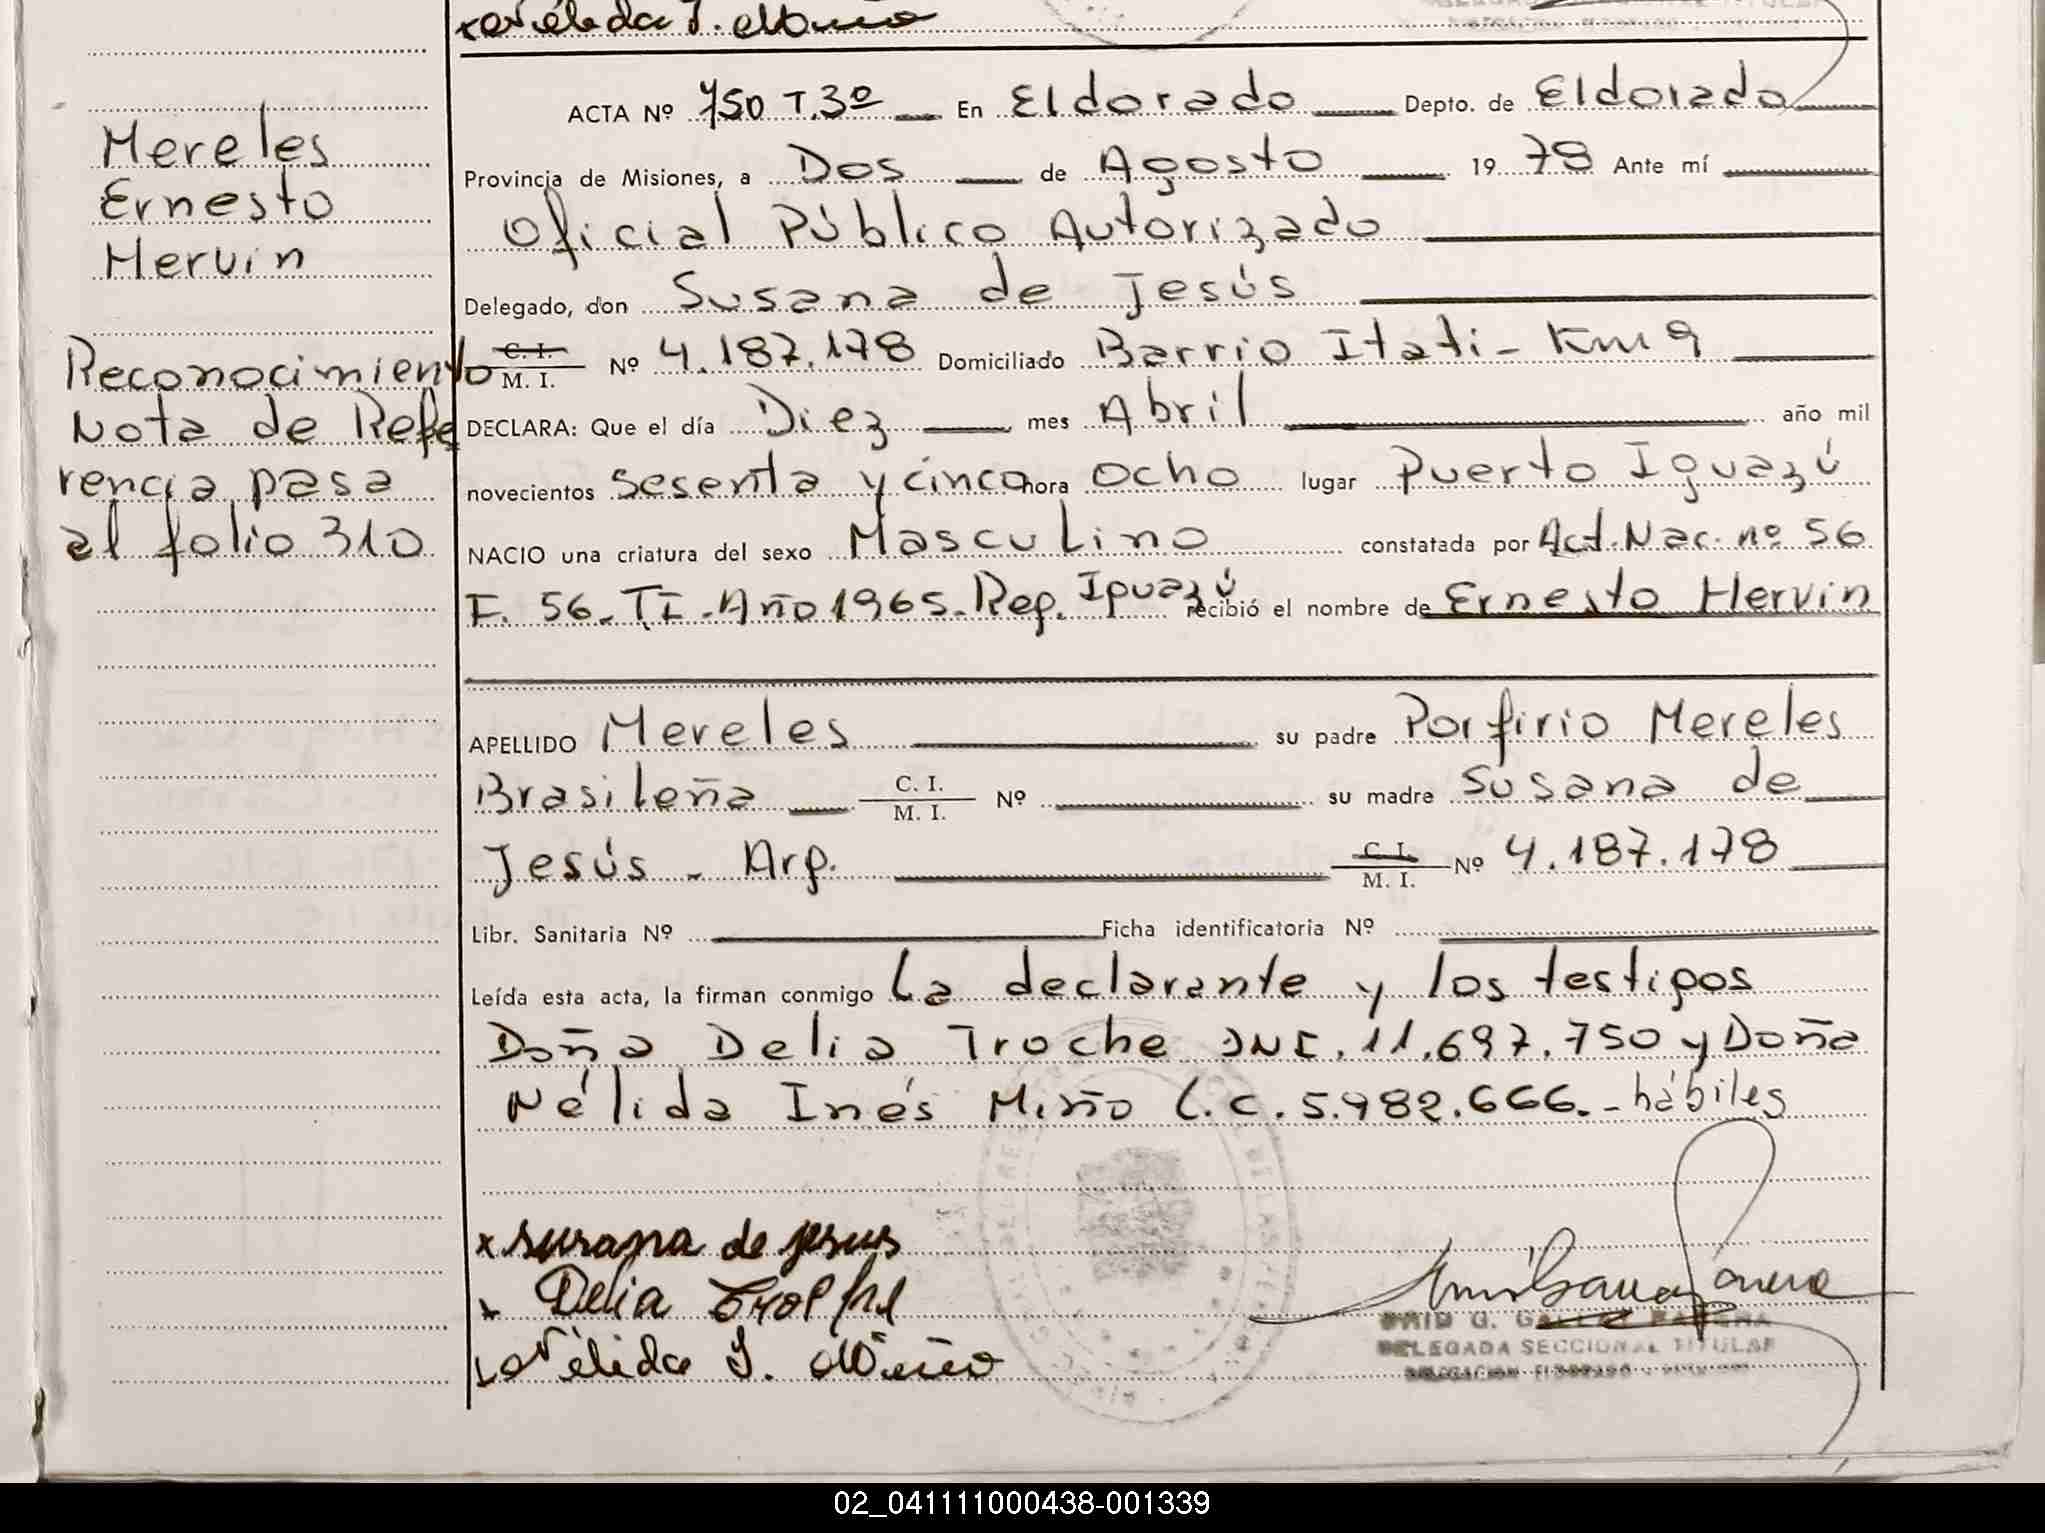 Nélida I. Miño
ACTA Nº 750 T.3º En Eldorado Depto. de Eldorado
Mereles
Ernesto
Hervin
Provincia de Misiones, a Dos de Agosto 1978 Ante mí
Oficial Público Autorizado
Delegado, don Susana de Jesús
C. I.
M. I. Nº 4.187.178 Domiciliado Barrio Itati - Km 9
Reconocimiento
Nota de Refe
rencia pasa
al folio 310
DECLARA: Que el día Diez mes Abril año mil
novecientos sesenta y cinco hora ocho lugar Puerto Iguazú
NACIO una criatura del sexo Masculino constatada por Act. Nac. nº 56
F. 56 - T.I - Año 1965 - Reg. Iguazú recibió el nombre de Ernesto Hervin
APELLIDO Mereles su padre Porfirio Mereles
Brasileña C. I.
M. I. Nº su madre Susana de
Jesús - Arg. C. I.
M. I. Nº 4.187.178
Libr. Sanitaria Nº Ficha identificatoria Nº
Leída esta acta, la firman conmigo La declarante y los testigos
Doña Delia Troche DNI. 11.697.750 y Doña
Nélida Inés Miño L.C. 5.982.666. - hábiles
x susana de jesus
x Delia
Nélida I. Miño
DELEGADA SECCIONAL TITULAR
02_041111000438-001339